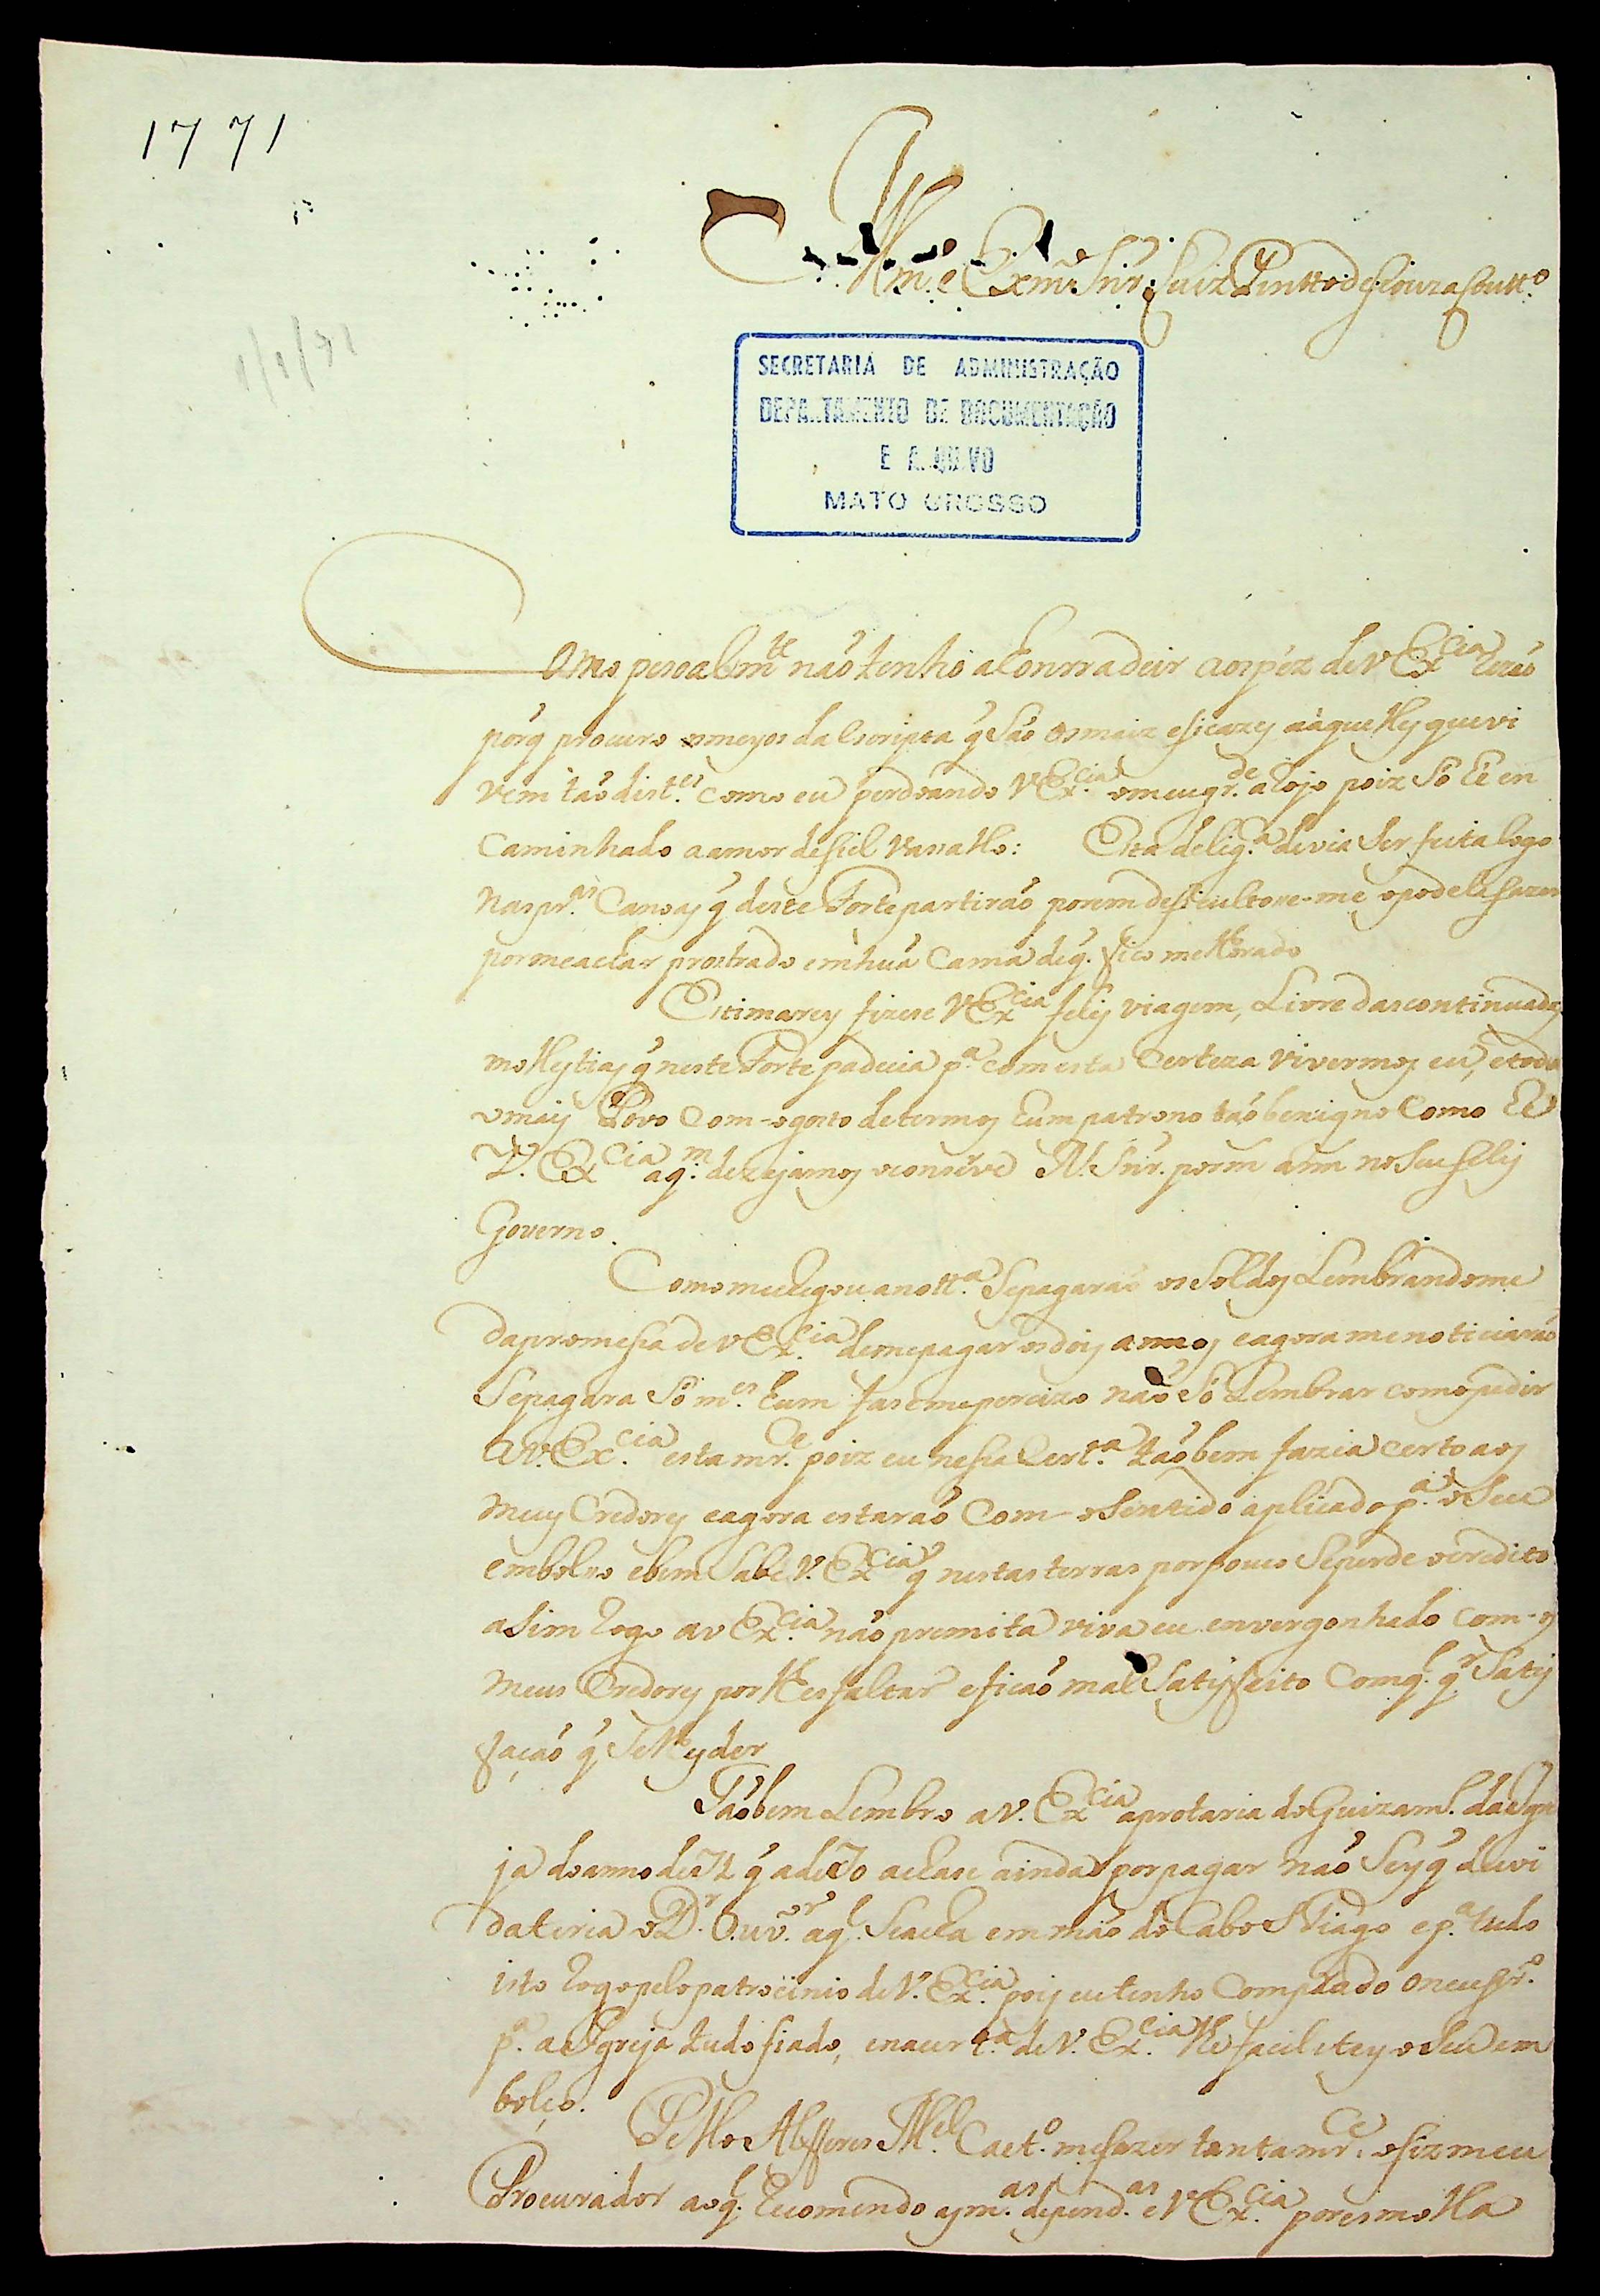 1771
Illm.º e Exm.º Snr. Luiz Pinto de Souza Coutt.º
SECRETARIA DE ADMINISTRAÇÃO
DEPARTAMENTO DE DOCUMENTAÇÃO
E ARQUIVO
MATO GROSSO
Como pesoalm.te não tenho a honrra de ir aos péz de V Ex.cia rezão
porq̃ procuro os meyos da escripta q̃ são os maiz eficazes aàquelles que vi
vem tão dist.es como eu perdoando V Ex.cia o meu gr.de a rojo poiz só hé en
Caminhado a amor de fiel vasallo: Esta delig.ª devia ser feita logo
nas pr.as Canoas q̃ deste Forte partirão porem deficultou-me o podela fazer
por me achar prostrado em hũa Cama de q. fico melhorado
Estimarey fizese V Ex.cia felis viagem, Livre das continuadas
molestias q̃ neste Forte padecia p.ª com esta certeza vivermos eu, e todo
o mais Povo com-o gosto de termos hum patrono tão benigno Como hé
V. Ex.cia a q.m dezejamos o consérve N. Snr. por m annˢ no seu felis
Governo.
Como me chegou a nott.ª Se pagarão os Soldos Lembrandome
da promesa de V Ex.cia de me pagar os dois annos e agora me noticiarão
Se pagara Só m.es hum fasme perciso não Só Lembrar como pedir
a V. Ex.cia esta m.ce poiz eu nesa Cert.ª tãobem fazia certo aos
meus Credores e agora estarão Com-o Sentido aplicado p.ª o Seu
embolso e bem Sabe V. Ex.cia q̃ nestas terras por pouco Se perde o credito
asim rogo a V Ex.cia não premita viva eu envergonhado com-os
meus Credores por lhes faltar e ficão mal Satisfeito Com q.l q.r Satis
fação q̃ Se lhes der
Tãobem Lembro a V. Ex.cia a do Guizam.to da Igre
ja do anno de q̃ a de 70 achase ainda por pagar não Sey q̃ duvi
da teria o D.r Ouv.or a q.l Se acha em mão do Cabo Thiago e p.ª tudo
isto rogo pelo patrocinio de V. Ex.cia pois eu tenho Comprado o necesr.º
p.ª a Igreja tudo fiado, e na cert.ª de V. Ex.cia lhe facilitey o Seu em
bolço.
Pello Alferes M.el Caet.º me fazer tanta m.ce o fiz meu
Procurador ao q.l recomendo as m.as depend.as e V Ex.cia por esmolla